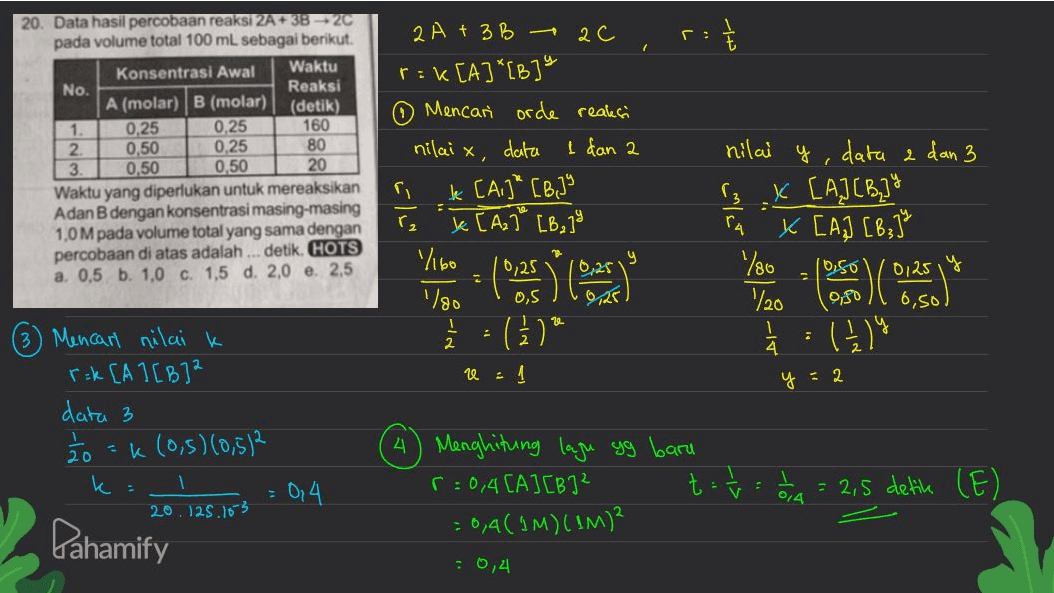 20. Data hasil percobaan reaksi 2A + 3B → 2C
pada volume total 100 mL sebagai berikut.
No. | Konsentrasi Awal | Waktu Reaksi (detik)
A (molar) | B (molar)
1. 0,25 0,25 160
2. 0,50 0,25 80
3. 0,50 0,50 20
Waktu yang diperlukan untuk mereaksikan
A dan B dengan konsentrasi masing-masing
1,0 M pada volume total yang sama dengan
percobaan di atas adalah ... detik. HOTS
a. 0,5 b. 1,0 c. 1,5 d. 2,0 e. 2,5
2A + 3B → 2C , r = 1/t
r = k [A]^x [B]^y
① Mencari orde reaksi
nilai x, data 1 dan 2
r₁/r₂ = k [A₁]^x [B₁]^y / k [A₂]^x [B₂]^y
1/160 / 1/80 = (0,25/0,5)^x (0,25/0,25)^y
1/2 = (1/2)^x
x = 1
nilai y, data 2 dan 3
r₃/r₄ = k [A₂][B₂]^y / k [A₃][B₃]^y
1/80 / 1/20 = (0,50/0,50) (0,25/0,50)^y
1/4 = (1/2)^y
y = 2
③ Mencari nilai k
r = k [A][B]²
data 3
1/20 = k (0,5)(0,5)²
k = 1 / 20 . 125 . 10⁻³ = 0,4
④ Menghitung laju yg baru
r = 0,4 [A][B]²
= 0,4 (1M)(1M)²
= 0,4
t = 1/v = 1/0,4 = 2,5 detik (E)
Pahamify